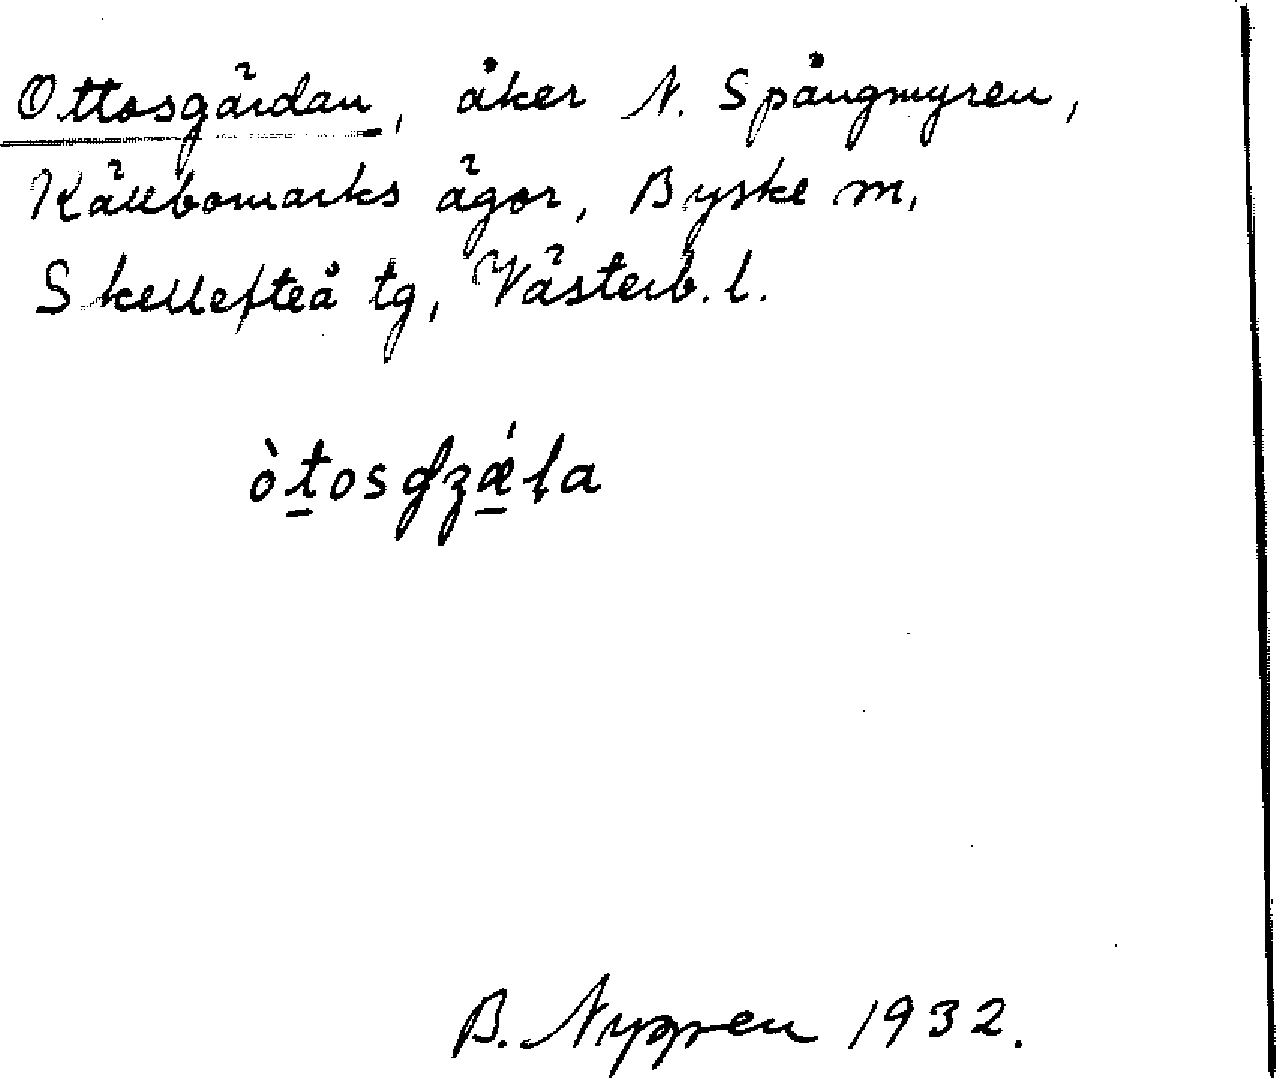 Ottosgärdan, åker N. Spångmyren,
Källbomarks ägor, Byske sn,
Skellefteå tg, Västerb. l.
òtosʤǽɭa
B. Nygren 1932.